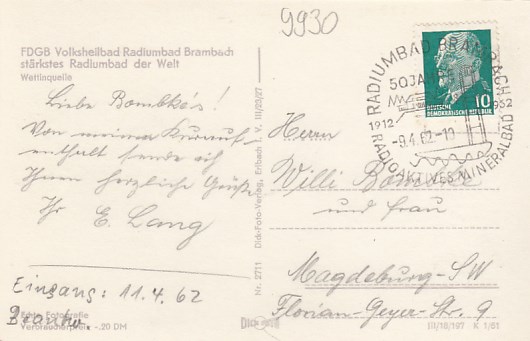 9930
FDGB Volksheilbad Radiumbad Brambach
stärkstes Radiumbad der Welt
Wettinquelle
Liebe Bombkes!
Von meinem Kurauf-
enthalt sende ich
Ihnen herzliche Grüße
Ihr E. Lang
Eingang: 11.4.62
Echte Fotografie
Verbraucherpreis -.20 DM
Nr. 2711 Dick-Foto-Verlag, Erlbach i. V. III/23/27
RADIUMBAD BRAMBACH
50 JAHRE
1912 1962
-9.4.62-10
RADIOAKTIVES MINERALBAD
10
DEUTSCHE
DEMOKRATISCHE REPUBLIK
Herrn
Willi
und Frau
Magdeburg-SW
Florian-Geyer-Str. 9
DICK FOTO
III/18/197 K 1/61